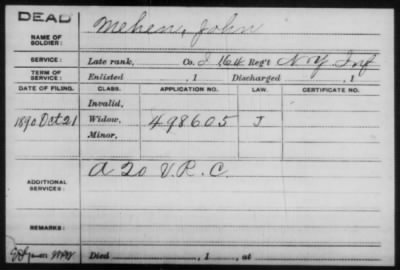 DEAD
NAME OF SOLDIER: Mehen, John
SERVICE: Late rank, Co. I 164 Reg't N.Y. Inf
TERM OF SERVICE: Enlisted , 1 Discharged , 1
DATE OF FILING. CLASS. APPLICATION NO. LAW. CERTIFICATE NO.
Invalid,
1890 Oct 21 Widow, 498605 J
Minor,
ADDITIONAL SERVICES: A 20 V.R.C.
REMARKS:
Died , 1 , at